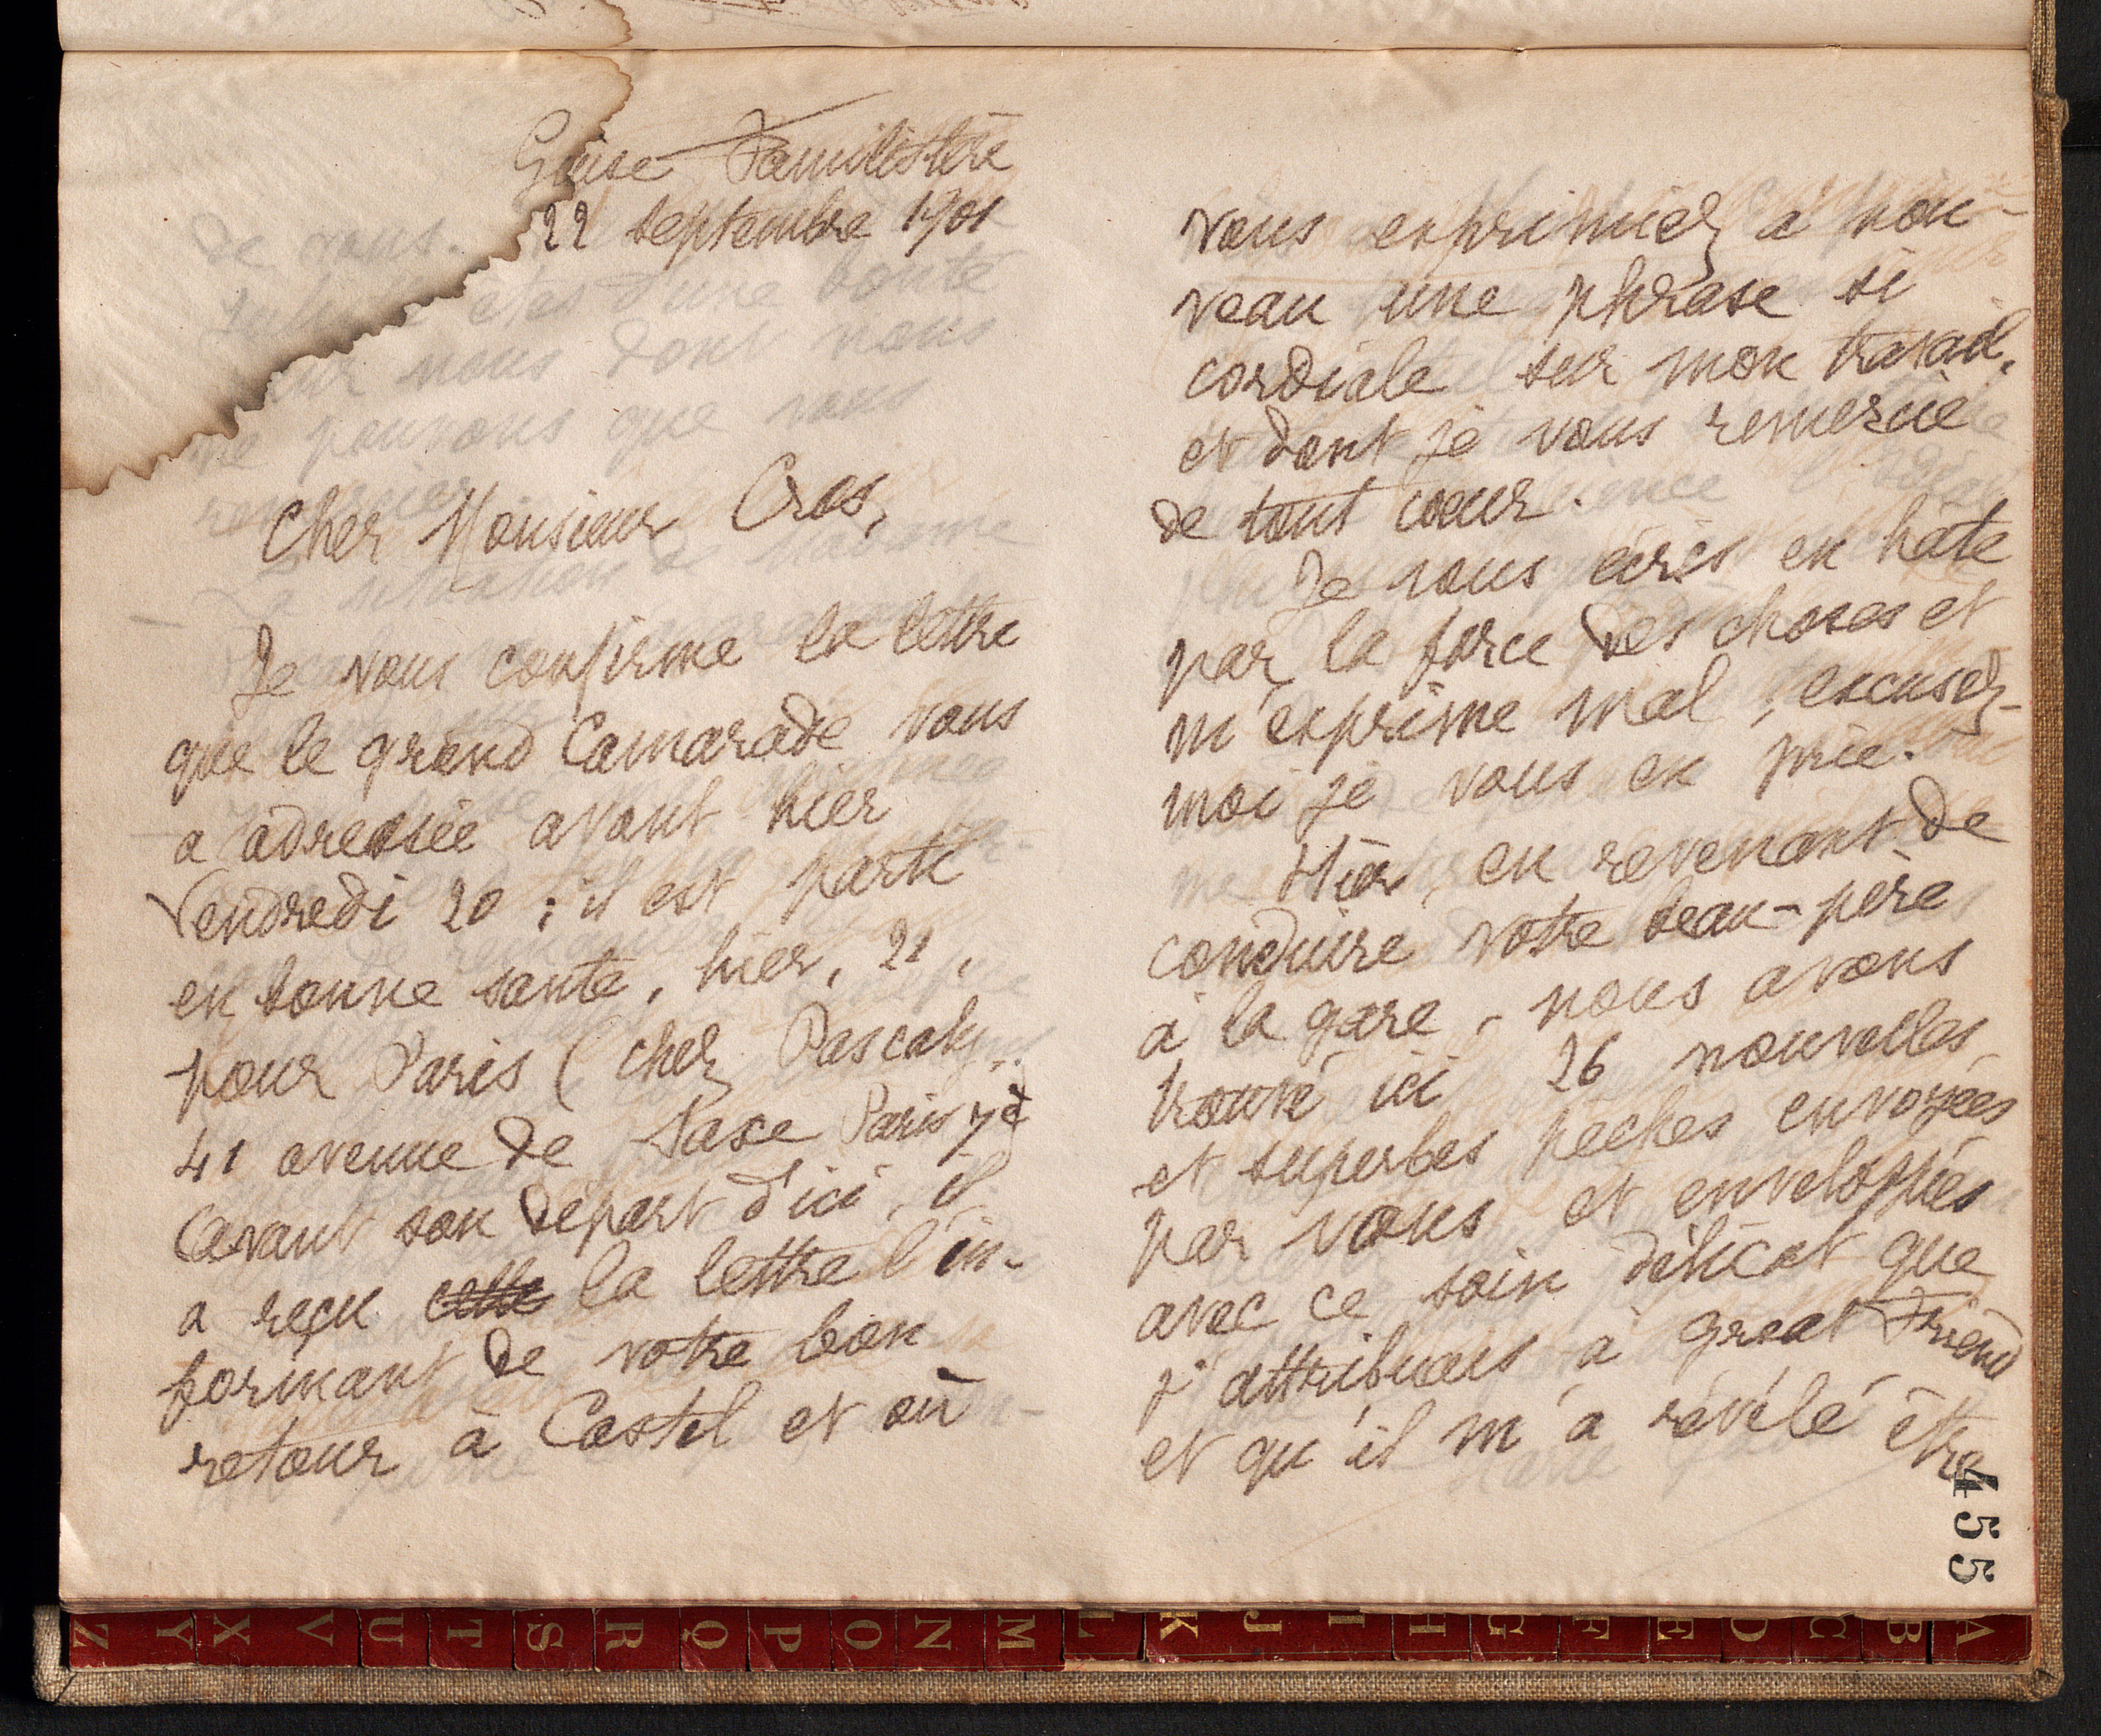 Guise Familistère
22 septembre 1901
Cher Monsieur Cros,
Je vous confirme la lettre
que le grand Camarade vous
a adressée avant hier
Vendredi 20 ; il est parti
en bonne santé, hier, 21,
pour Paris (chez Pascaly,
41 avenue de Saxe Paris 7e)
Avant son départ d'ici, il
a reçu cette la lettre l'in-
formant de votre bon
retour à Castel et où
vous exprimiez à nou-
veau une phrase si
cordiale sur mon travail,
et dont je vous remercie
de tout coeur.
Je vous écris en hâte
par la force des choses et
m'exprime mal, excusez-
moi je vous en prie.
Hier, en revenant de
conduire votre beau-père
à la gare, nous avons
trouvé ici 26 nouvelles
et superbes pêches envoyées
par vous et enveloppées
avec ce soin délicat que
j'attribuais à great Friend
et qu'il m'a révélé être
455
Z Y X V U T S R Q P O N M L K J I H G F E D C B A